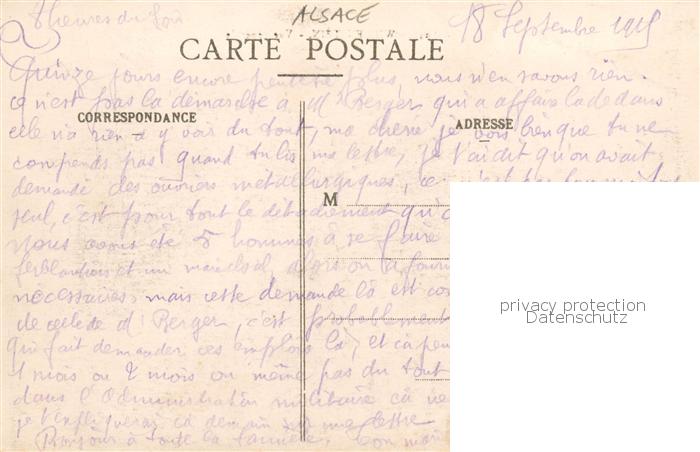 8 heures du soir
ALSACE
18 Septembre 1915
CARTE POSTALE
Quinze jours encore peut être plus, nous n'en savons rien.
ce n'est pas la démarche à Mr Berger qui a affaire la dedans
CORRESPONDANCE
ADRESSE
cela n'a rien a y voir du tout, ma chérie je vois bien que tu ne
comprends pas quand tu lis ma lettre, je t'ai dit qu'on avait
demandé des ouvriers métallurgiques, ce n'est pas
M
seul, c'est pour tout le détachement qu'
nous avons été 5 hommes à se faire
ferblantiers et un maréchal, alors on a
nécessaires, mais cette demande là est
de celle de Mr Berger, c'est probablement
qui fait demander ces emplois là, et ca peu
1 mois ou 2 mois ou même pas du tout
dans l'Administration militaire ca ne
je t'expliquerai ca demain sur ma lettre
Bonjour à toute la famille. Ton mari
privacy protection
Datenschutz